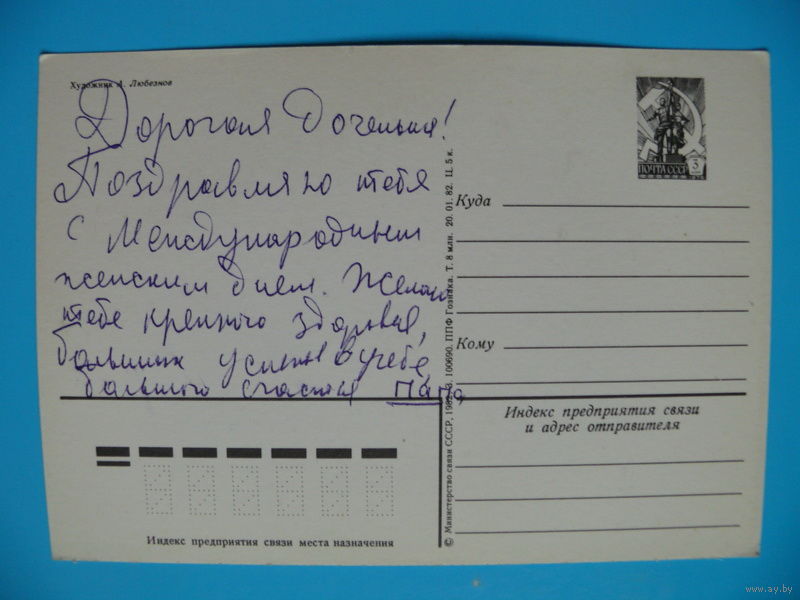 Художник А. Любезнов
Дорогая Доченька!
Поздравляю тебя
с Международным
женским днем. Желаю
тебе крепкого здоровья,
больших успехов в учебе,
большого счастья папа
ПОЧТА СССР 3
Куда
Кому
Индекс предприятия связи
и адрес отправителя
Индекс предприятия связи места назначения
© Министерство связи СССР, 1982. З. 100690. ППФ Гознака. Т. 8 млн. 20. 01. 82. Ц. 5 к.
www.ay.by